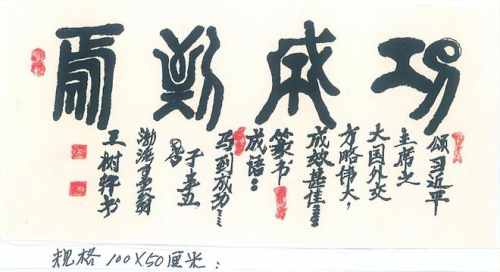 马到成功
颂习近平
主席之
大国外交
方略伟大，
成效甚佳
篆书
成语：
马到成功……
渤海墨翁
王树书
规格100X50厘米：